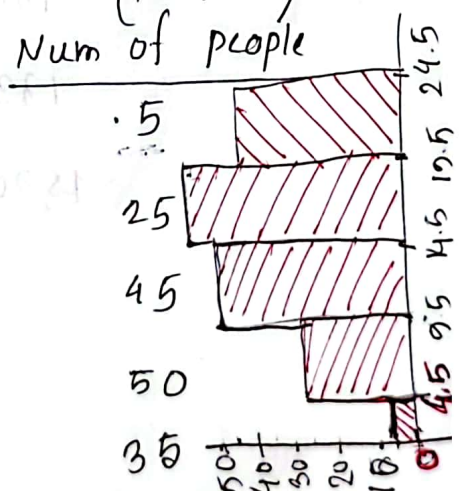 Num of people
.5
25
45
50
35
24.5
19.5
14.5
9.5
4.5
0
50
40
30
20
10